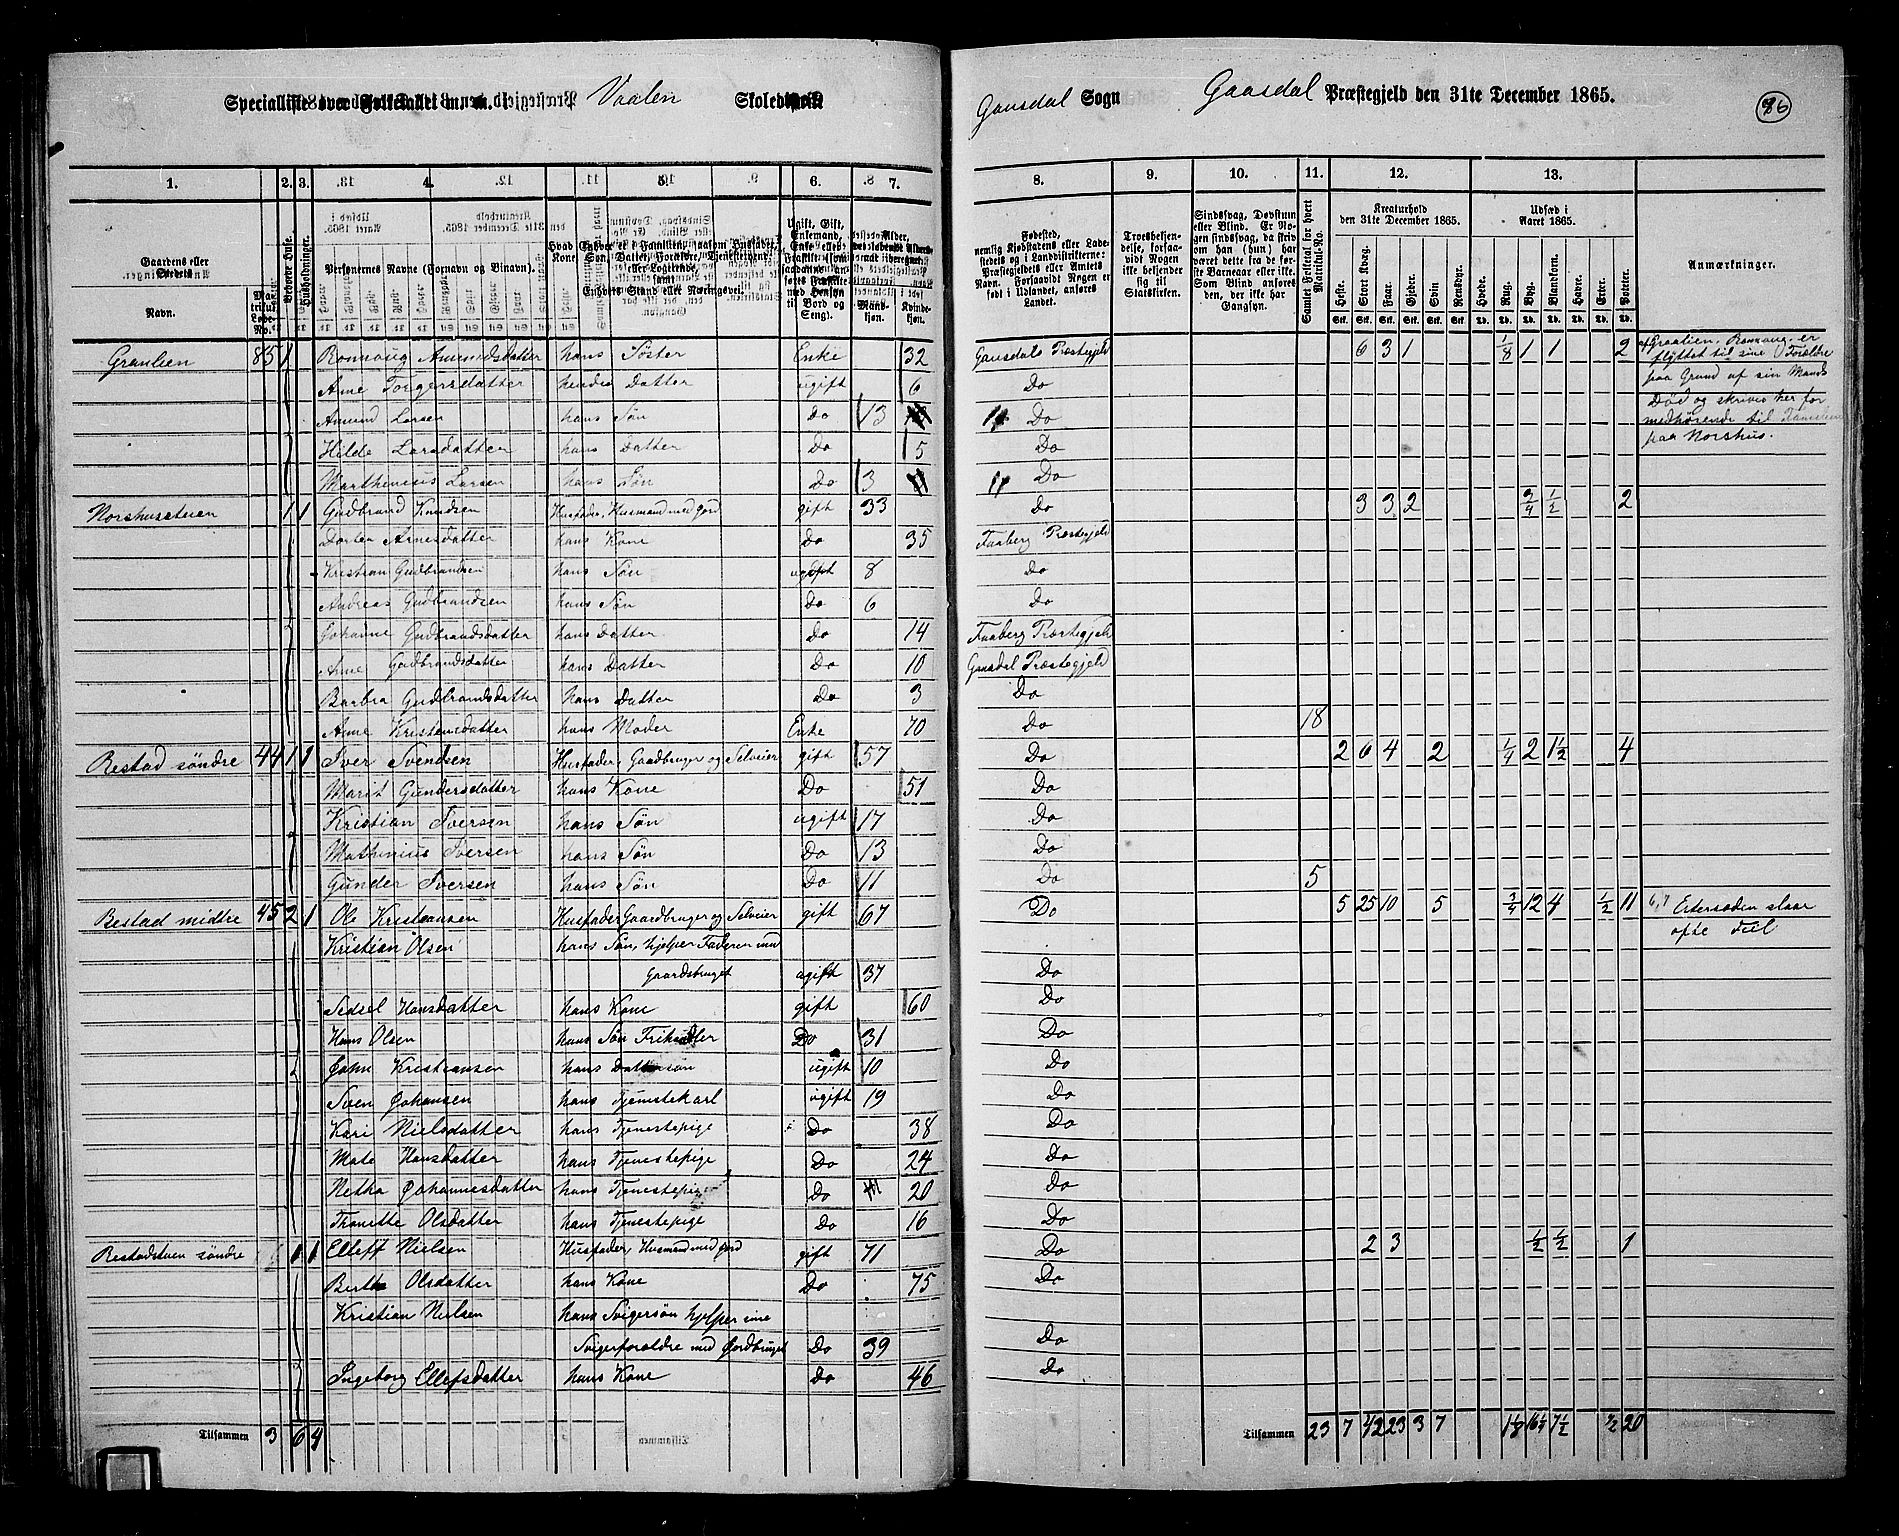 Specialliste over Folketallet Vaalen Skoledistrikt
Gausdal Sogn Gausdal Præstegjeld den 31te December 1865. 86
1. 2. 3. 4. 5. 6. 7. 8. 9. 10. 11. 12. 13.
Gaardenes eller Stedets Navn.
Matrikul-Løbe-No.
Beboede Huse.
Husholdninger.
Personernes Navne (Fornavn og Binavn).
Fødested, nemlig Kjøbstadens eller Ladestedets og i Landdistrikterne: Præstegjeldets eller Amtets Navn. Forsaavidt Nogen er født i Udlandet, anføres Landet.
Troesbekjendelse, forsaavidt Nogen ikke bekjender sig til Statskirken.
Sindssvag, Døvstum eller Blind. Er Nogen sindssvag, da skrives om han (hun) har været dette fra de første Barneaar eller ikke. Som Blind ansøres den, der ikke har Gangsyn.
Samlet Folketal for hvert Matrikul-No.
Kreaturhold den 31te December 1865.
Heste. Stort Kvæg. Faar. Gjeder. Svin. Rensdyr.
Udsæd i Aaret 1865.
Hvede. Rug. Byg. Blandkorn. Havre. Erter. Poteter.
Anmærkninger.
Graulien 85 1 Ronnoug Amundsdatter hans Søster Enke 32 Gausdals Præstegjeld 6 3 1 1/8 1 1 2 Ronnoug er
flyttet til sine Forældre
Anne Torgersdatter hendes Datter ugift 6 Do paa Grund af sin Mands
Amund Larsen hans Søn Do 13 Do Død og skrives her for
Hilde Larsdatter hans Datter Do 5 Do medhørende til Familien
paa Norshus.
Marthinius Larsen hans Søn Do 3 Do
Norshusstuen 1 1 Gudbrand Knudsen Husfader, Husmand med Jord gift 33 Do 3 3 2 3/4 1/2 2
Dorthea Arnesdatter hans Kone Do 35 Faaberg Præstegjeld
Kristian Gudbrandsen hans Søn ugift 8 Do
Andreas Gudbrandsen hans Søn Do 6 Do
Johanne Gudbrandsdatter hans Datter Do 14 Faaberg Præstegjeld
Anne Gudbrandsdatter hans Datter Do 10 Gausdal Præstegjeld
Barbra Gudbrandsdatter hans Datter Do 3 Do
Anne Kristensdatter hans Moder Enke 70 Do 18
Bestad søndre 44 1 1 Iver Svendsen Husfader, Gaardbruger og Selveier gift 57 Do 2 6 4 2 1/4 2 1 1/2 4
Marit Gundersdatter hans Kone Do 51 Do
Kristian Iversen hans Søn ugift 17 Do
Mathinius Iversen hans Søn Do 13 Do
Gunder Iversen hans Søn Do 11 Do 5
Bestad midtre 45 2 1 Ole Kristiansen Husfader Gaardbruger og Selveier gift 67 Do 5 25 10 5 3/4 12 4 1/2 11 Ertesæden slaar
Kristian Olsen hans Søn, hjelper Faderen med ofte Feil
Gaardsbruget ugift 37 Do
Sidsel Hansdatter hans Kone gift 60 Do
Hans Olsen hans Søn Do 31 Do
John Kristiansen hans Dattersøn ugift 10 Do
Sven Johansen hans Tjenestekarl ugift 19 Do
Kari Nielsdatter hans Tjenestepige Do 38 Do
Mate Hansdatter hans Tjenestepige Do 24 Do
Netha Johannesdatter hans Tjenestepige Do 20 Do
Tronette Olsdatter hans Tjenestepige Do 16 Do
Bestadstuen søndre 1 1 Elleff Nielsen Husfader, Husmand med Jord gift 71 Do 2 3 1/2 1/2 1
Berthe Olsdatter hans Kone Do 75 Do
Kristian Nielsen hans Svigersøn hjelper sine
Svigerforældre med Jordbruget Do 39 Do
Ingeborg Ellefsdatter hans Kone Do 46 Do
Tilsammen 3 6 4 Tilsammen 23 7 42 23 3 7 1 1/8 16 1/4 7 1/2 1/2 20